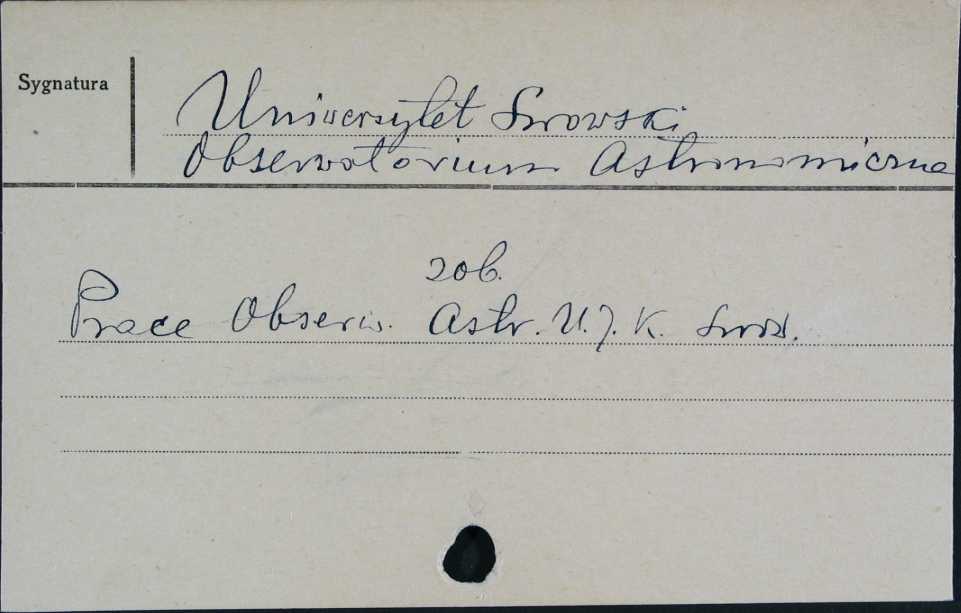 Sygnatura
Uniwersytet Lwowski
Obserwatorium Astronomiczne
zob.
Prace Obserw. Astr. U.J.K. Lwów.